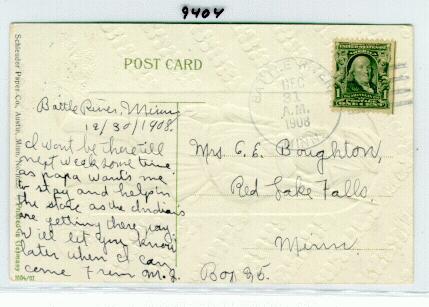 9404
POST CARD
BATTLE RIVER
DEC
31
A.M.
1908
MINN.
Battle River, Minn
12/30/1908.
I wont be there till
next week some time
as papa wants me
to stay and help in
the store as the Indians
are getting there pay.
Will let you know
later when I can
come From M. J.
Mrs. C. E. Boughton,
Red Lake Falls,
Minn.
Box 25.
Schleuder Paper Co., Austin, Minn.
Germany